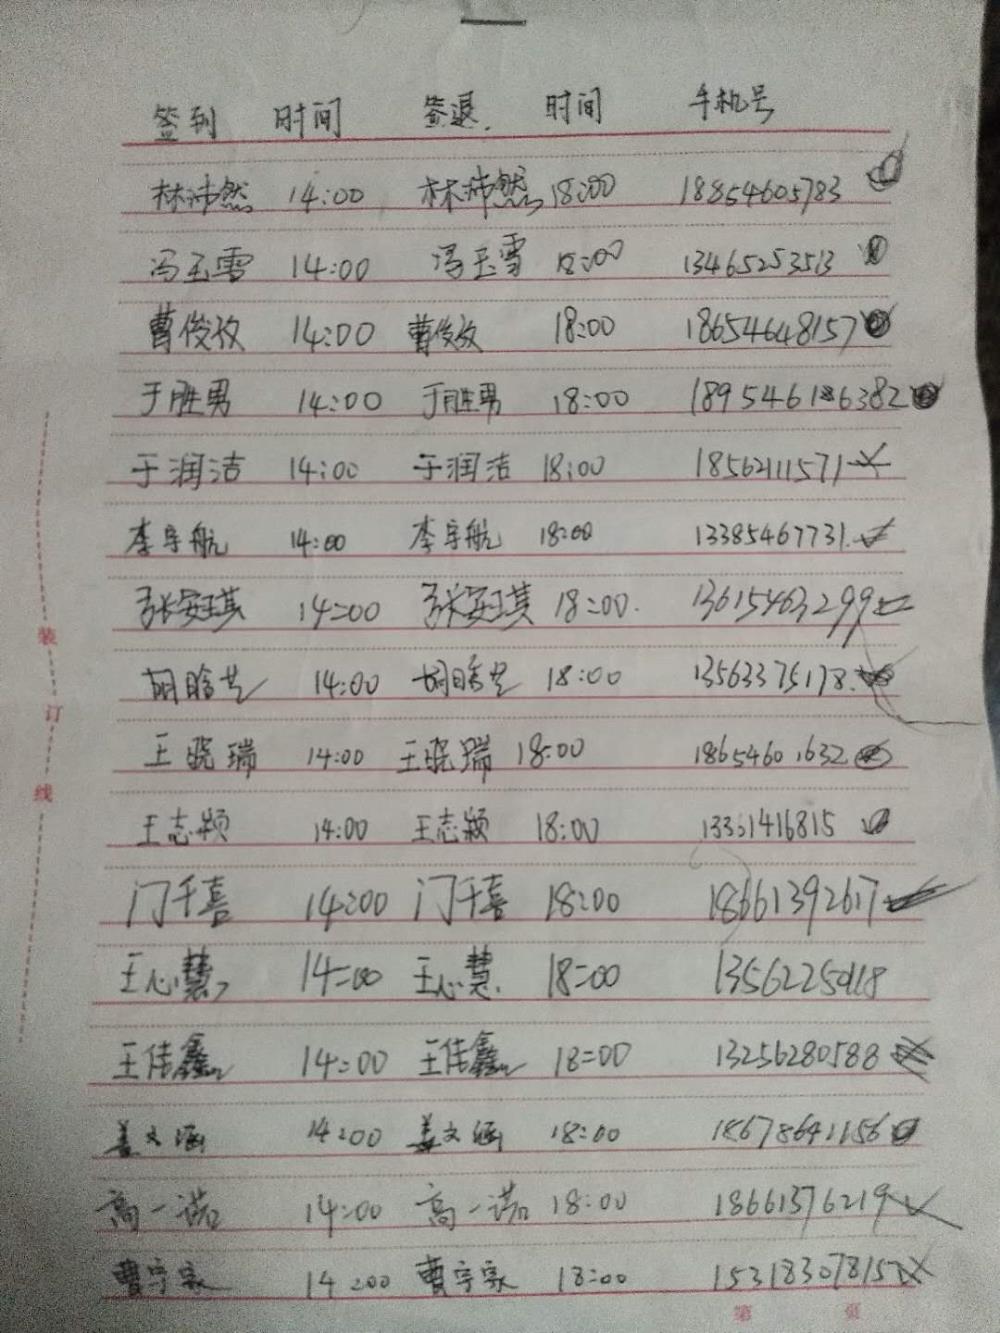 签到 时间 签退 时间 手机号
林沛然 14:00 林沛然 18:00 18854605783
冯玉雪 14:00 冯玉雪 18:00 13465253513
曹俊孜 14:00 曹俊孜 18:00 18654648157
于胜男 14:00 于胜男 18:00 189546186382
于润洁 14:00 于润洁 18:00 18562111571
李宇航 14:00 李宇航 18:00 13385467731
张安琪 14:00 张安琪 18:00. 13615463299
胡晗艺 14:00 胡晗艺 18:00 13563375178
王晓瑞 14:00 王晓瑞 18:00 18654601632
王志颖 14:00 王志颖 18:00 13361416815
门千喜 14:00 门千喜 18:00 18661392617
王心慧 14:00 王心慧 18:00
王佳鑫 14:00 王佳鑫 18:00 13256280588
姜文涵 14:00 姜文涵 18:00 18678641156
高一诺 14:00 高一诺 18:00 18661376219
曹宇家 14:00 曹宇家 18:00 15318307815
装订线
第 页